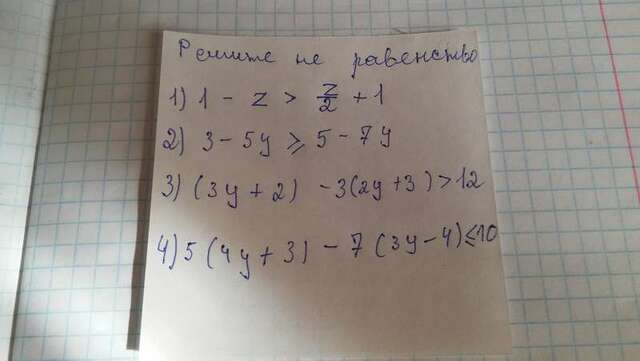 Решите не равенство
1) 1 - z > z/2 + 1
2) 3 - 5y ⩾ 5 - 7y
3) (3y + 2) - 3(2y + 3) > 12
4) 5 (4y + 3) - 7 (3y - 4) ≤ 10